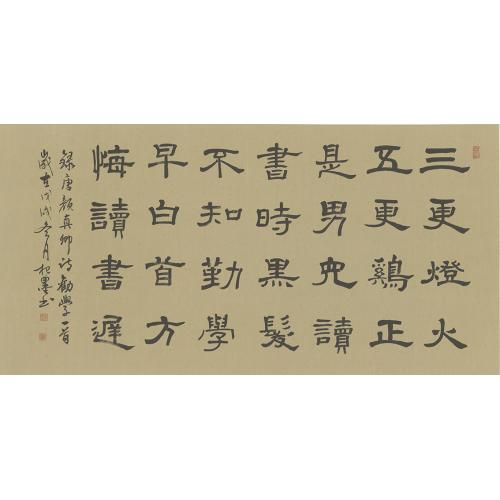 三更燈火
五更鷄正
是男兒讀
書時黑髮
不知勤學
早白首方
悔讀書遲
錄唐顏真卿詩勸學一首
歲在戊戌冬月墨书